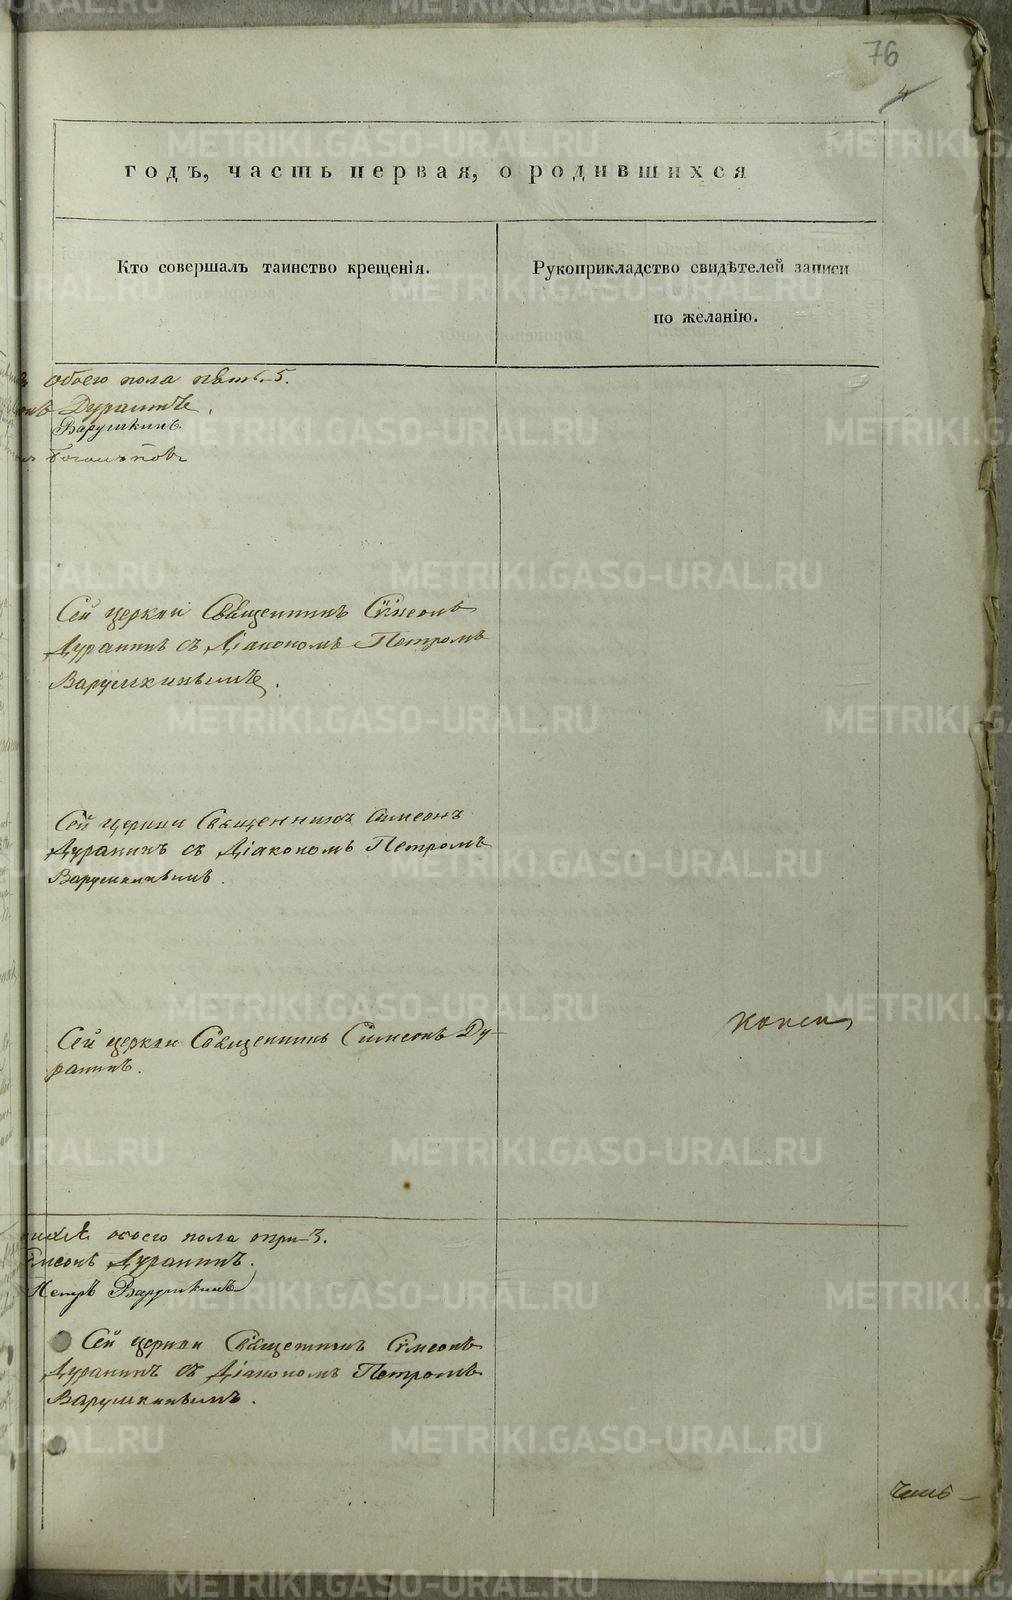 76
4
годъ, часть первая, о родившихся
Кто совершалъ таинство крещенія.
Рукоприкладство свидѣтелей записи
по желанію.
обоего пола пять 5.
Дуранинъ
Варушкинъ.
Сей церкви Священникъ Сѵмеонъ
Дуранинъ съ Діакономъ Петромъ
Варушкинымъ.
Сей церкви Священникъ Симеонъ
Дуранинъ съ Діакономъ Петромъ
Варушкинымъ.
Сей церкви Священникъ Симеонъ Ду-
ранинъ.
обоего пола три 3.
Дуранинъ.
Петръ Варушкинъ
Сей церкви Священникъ Сѵмеонъ
Дуранинъ съ Діакономъ Петромъ
Варушкинымъ.
METRIKI.GASO-URAL.RU